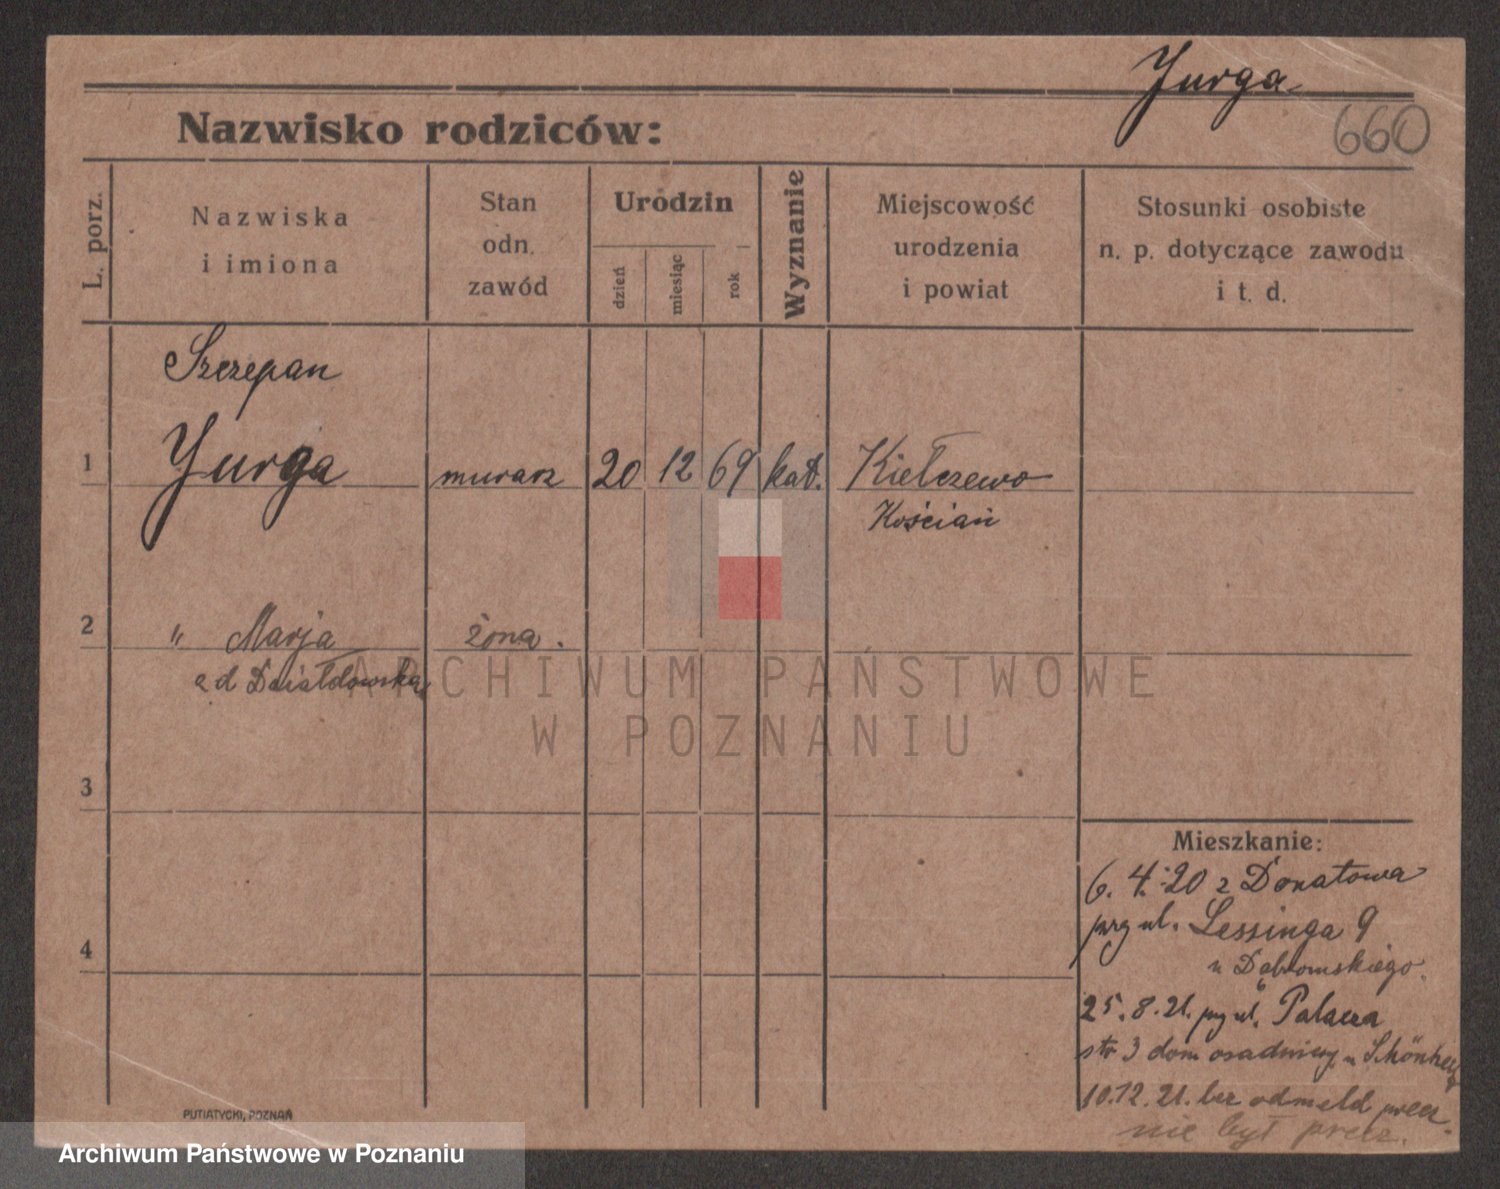 Jurga
660
Nazwisko rodziców:
L. porz.
Nazwiska
i imiona
Stan
odn.
zawód
Urodzin
dzień
miesiąc
rok
Wyznanie
Miejscowość
urodzenia
i powiat
Stosunki osobiste
n. p. dotyczące zawodu
i t. d.
Szczepan
1 Jurga murarz 20 12 69 kat. Kiełczewo
Kościan
2 " Marja żona.
Działdowska
ARCHIWUM PAŃSTWOWE
W POZNANIU
3
4
Mieszkanie:
6. 4. 20 z Donatowa
przy ul. Lessinga 9
u Dąbrowskiego.
25. 8. 21. przy ul. Palacza
str 3 dom osadniczy u
10.12.21. bez odmeld precz.
nie był precz.
PUTIATYCKI, POZNAŃ
Archiwum Państwowe w Poznaniu